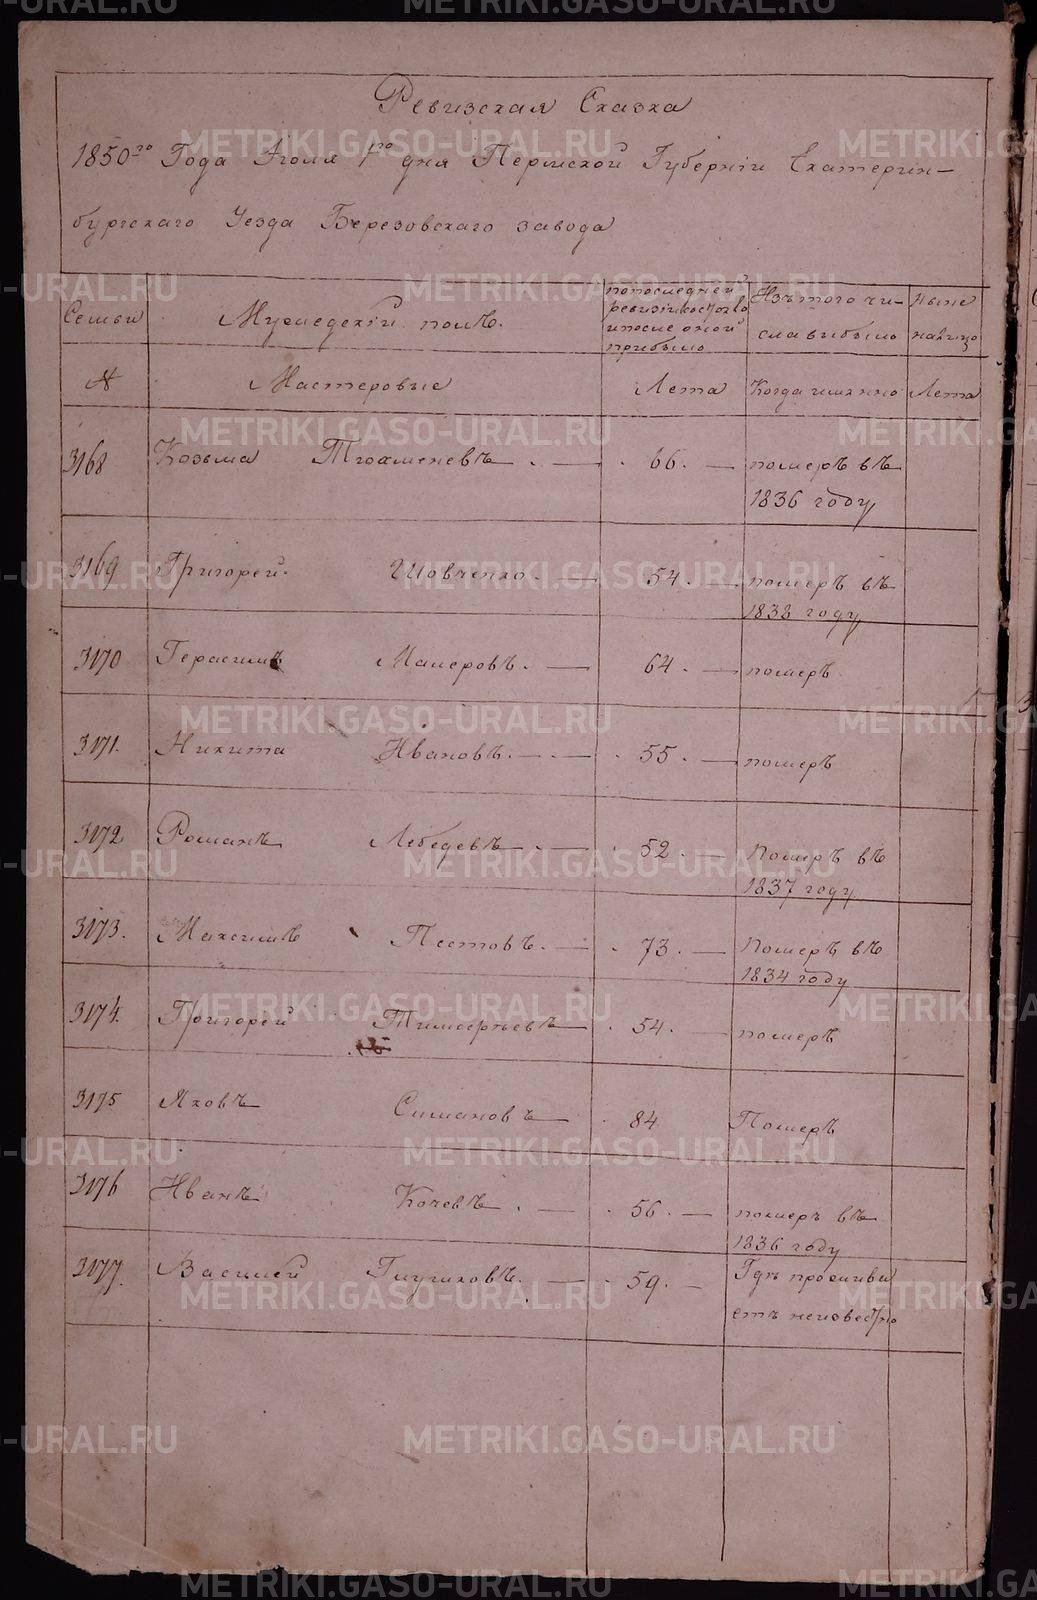 Ревизская Сказка
1850го Года Іюля 1го дня Пермской Губерніи Екатерин-
бургскаго Уезда Березовскаго завода
Семьи Мужедскій полъ. попоследней ревизіи состояло ипосле оной прибыло Изътого чи-сла выбыло Ныне налицо
№ Мастеровые Лета Когда имянно Лета
3168 Козьма 66. померъ въ
1836 году
3169 Григорей Шовченко 54. померъ въ
1838 году
3170 Герасимъ Мамеровъ. 64. померъ
3171. Никита Ивановъ. 55. померъ
3172 Романъ Лебедевъ 52. Померъ въ
1837 году
3173. Максимъ Пестовъ. 73. Померъ въ
1834 году
3174. Григорей Тимофеевъ 54. померъ
3175 Яковъ Симановъ 84 Померъ
3176 Иванъ Кочевъ 56. померъ въ
1836 году
3177. Василей 59. Где прожива
етъ неизвестно
METRIKI.GASO-URAL.RU